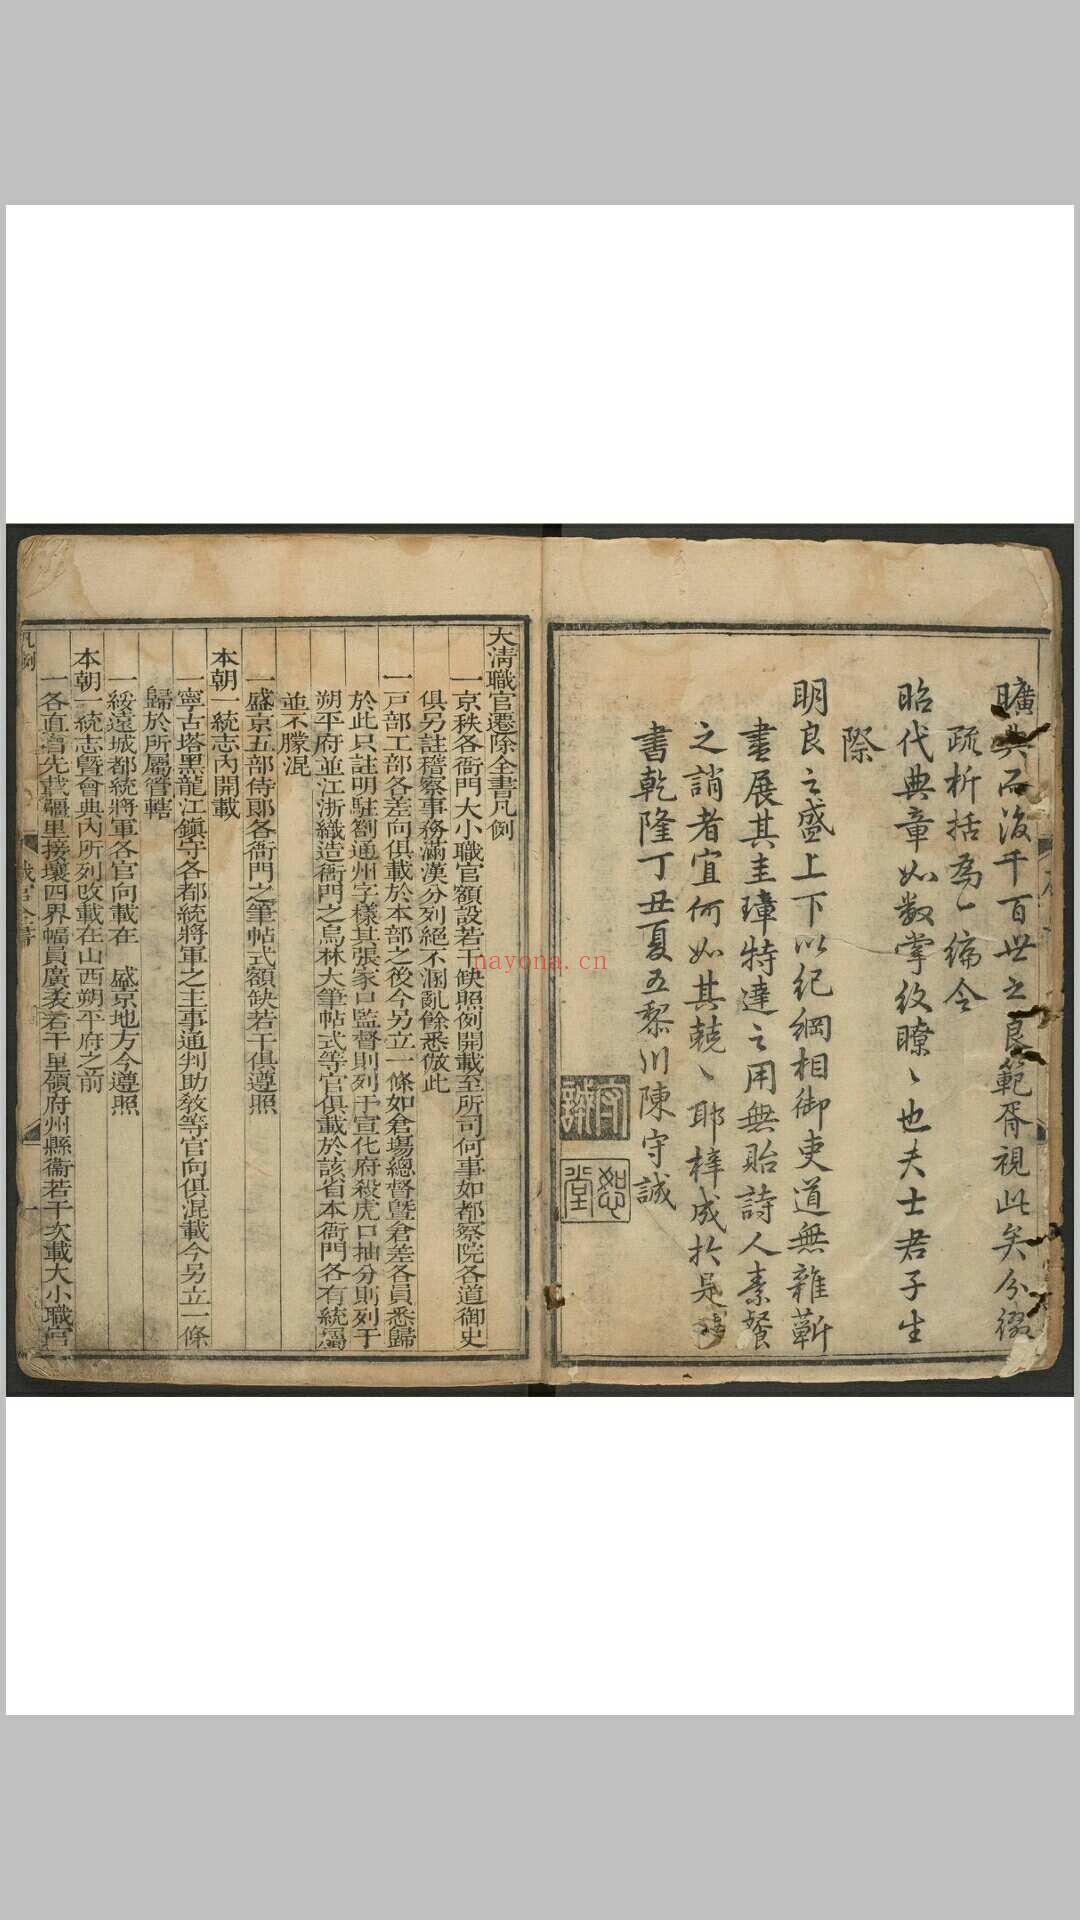 曠典而後千百世之良範胥視此矣分綴
疏析括為一編令
昭代典章如數掌紋瞭瞭也夫士君子生
際
明良之盛上下以紀綱相御吏道無雜蘄
畫展其圭璋特達之用無貽詩人素餐
之誚者宜何如其兢兢耶梓成於是
書乾隆丁丑夏五黎川陳守誠
守誠
恕堂
大清職官遷除全書凡例
一京秩各衙門大小職官額設若干缺照例開載至所司何事如都察院各道御史
俱另註稽察事務滿漢分列絕不溷亂餘悉倣此
一戸部工部各差向俱載於本部之後今另立一條如倉場總督曁倉差各員悉歸
於此只註明駐劄通州字樣其張家口監督則列于宣化府殺虎口抽分則列于
朔平府並江浙織造衙門之烏林大筆帖式等官俱載於該省本衙門各有統屬
並不朦混
一盛京五部侍郞各衙門之筆帖式額缺若干俱遵照
本朝一統志內開載
一寧古塔黑龍江鎮守各都統將軍之主事通判助敎等官向俱混載今另立一條
歸於所屬管轄
一綏遠城都統將軍各官向載在 盛京地方今遵照
本朝一統志曁會典內所列改載在山西朔平府之前
一各直省先載疆里接壤四界幅員廣袤若干里領府州縣衞若干次載大小職官
凡例
職官全書
一
nayona.cn